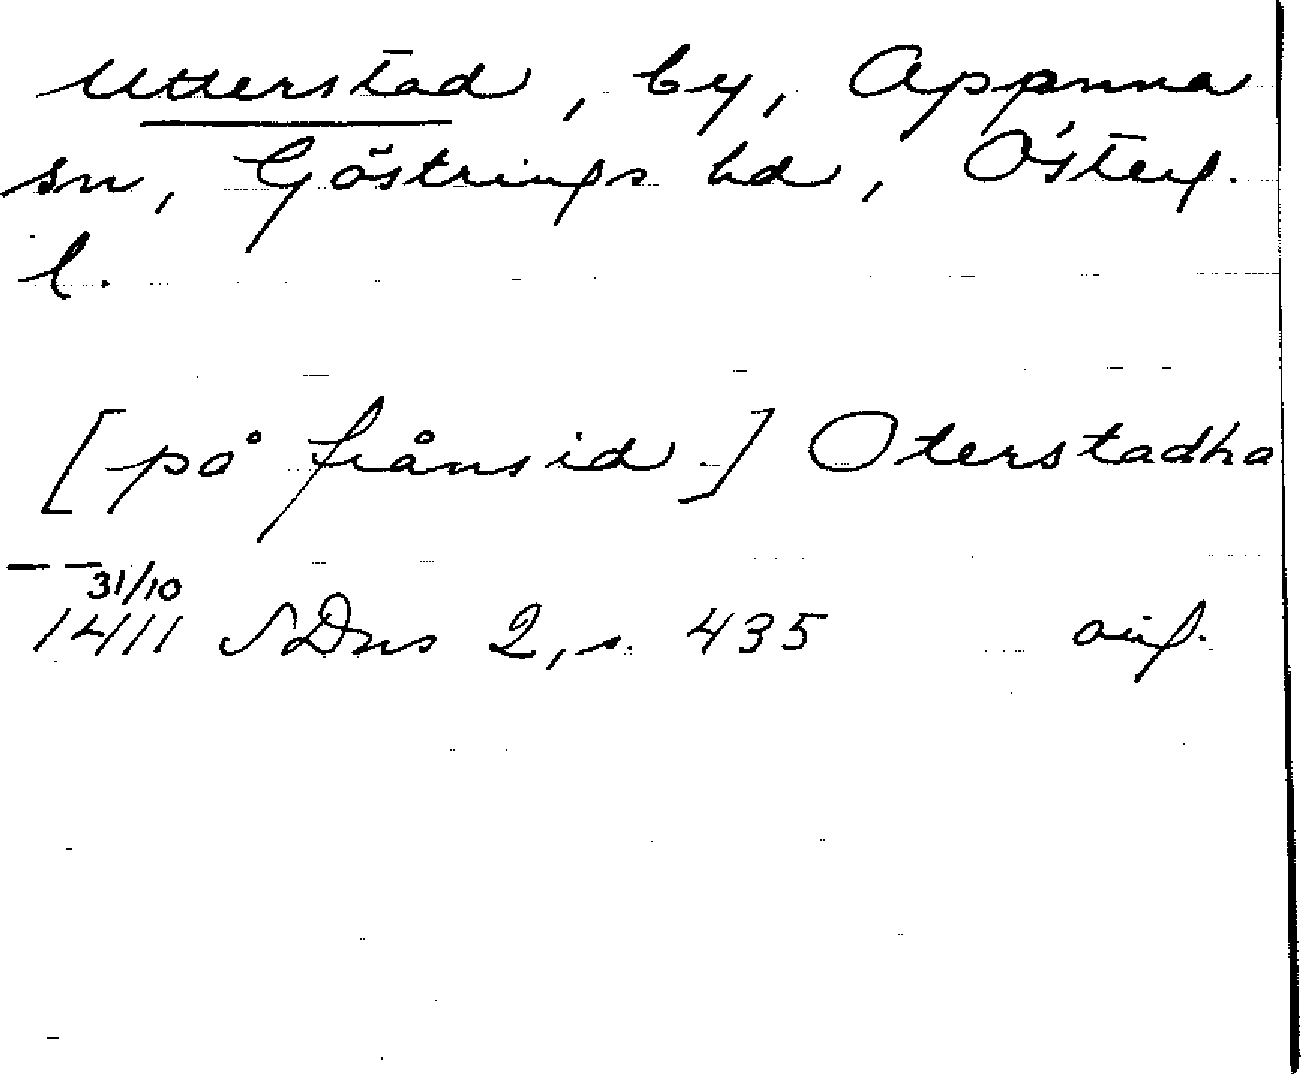 Utterstad, by, Appuna
sn, Göstrings hd, Österg.
l.
[på frånsid.] Oterstadha
— — 31/10
1411 SDns 2, s. 435 orig.